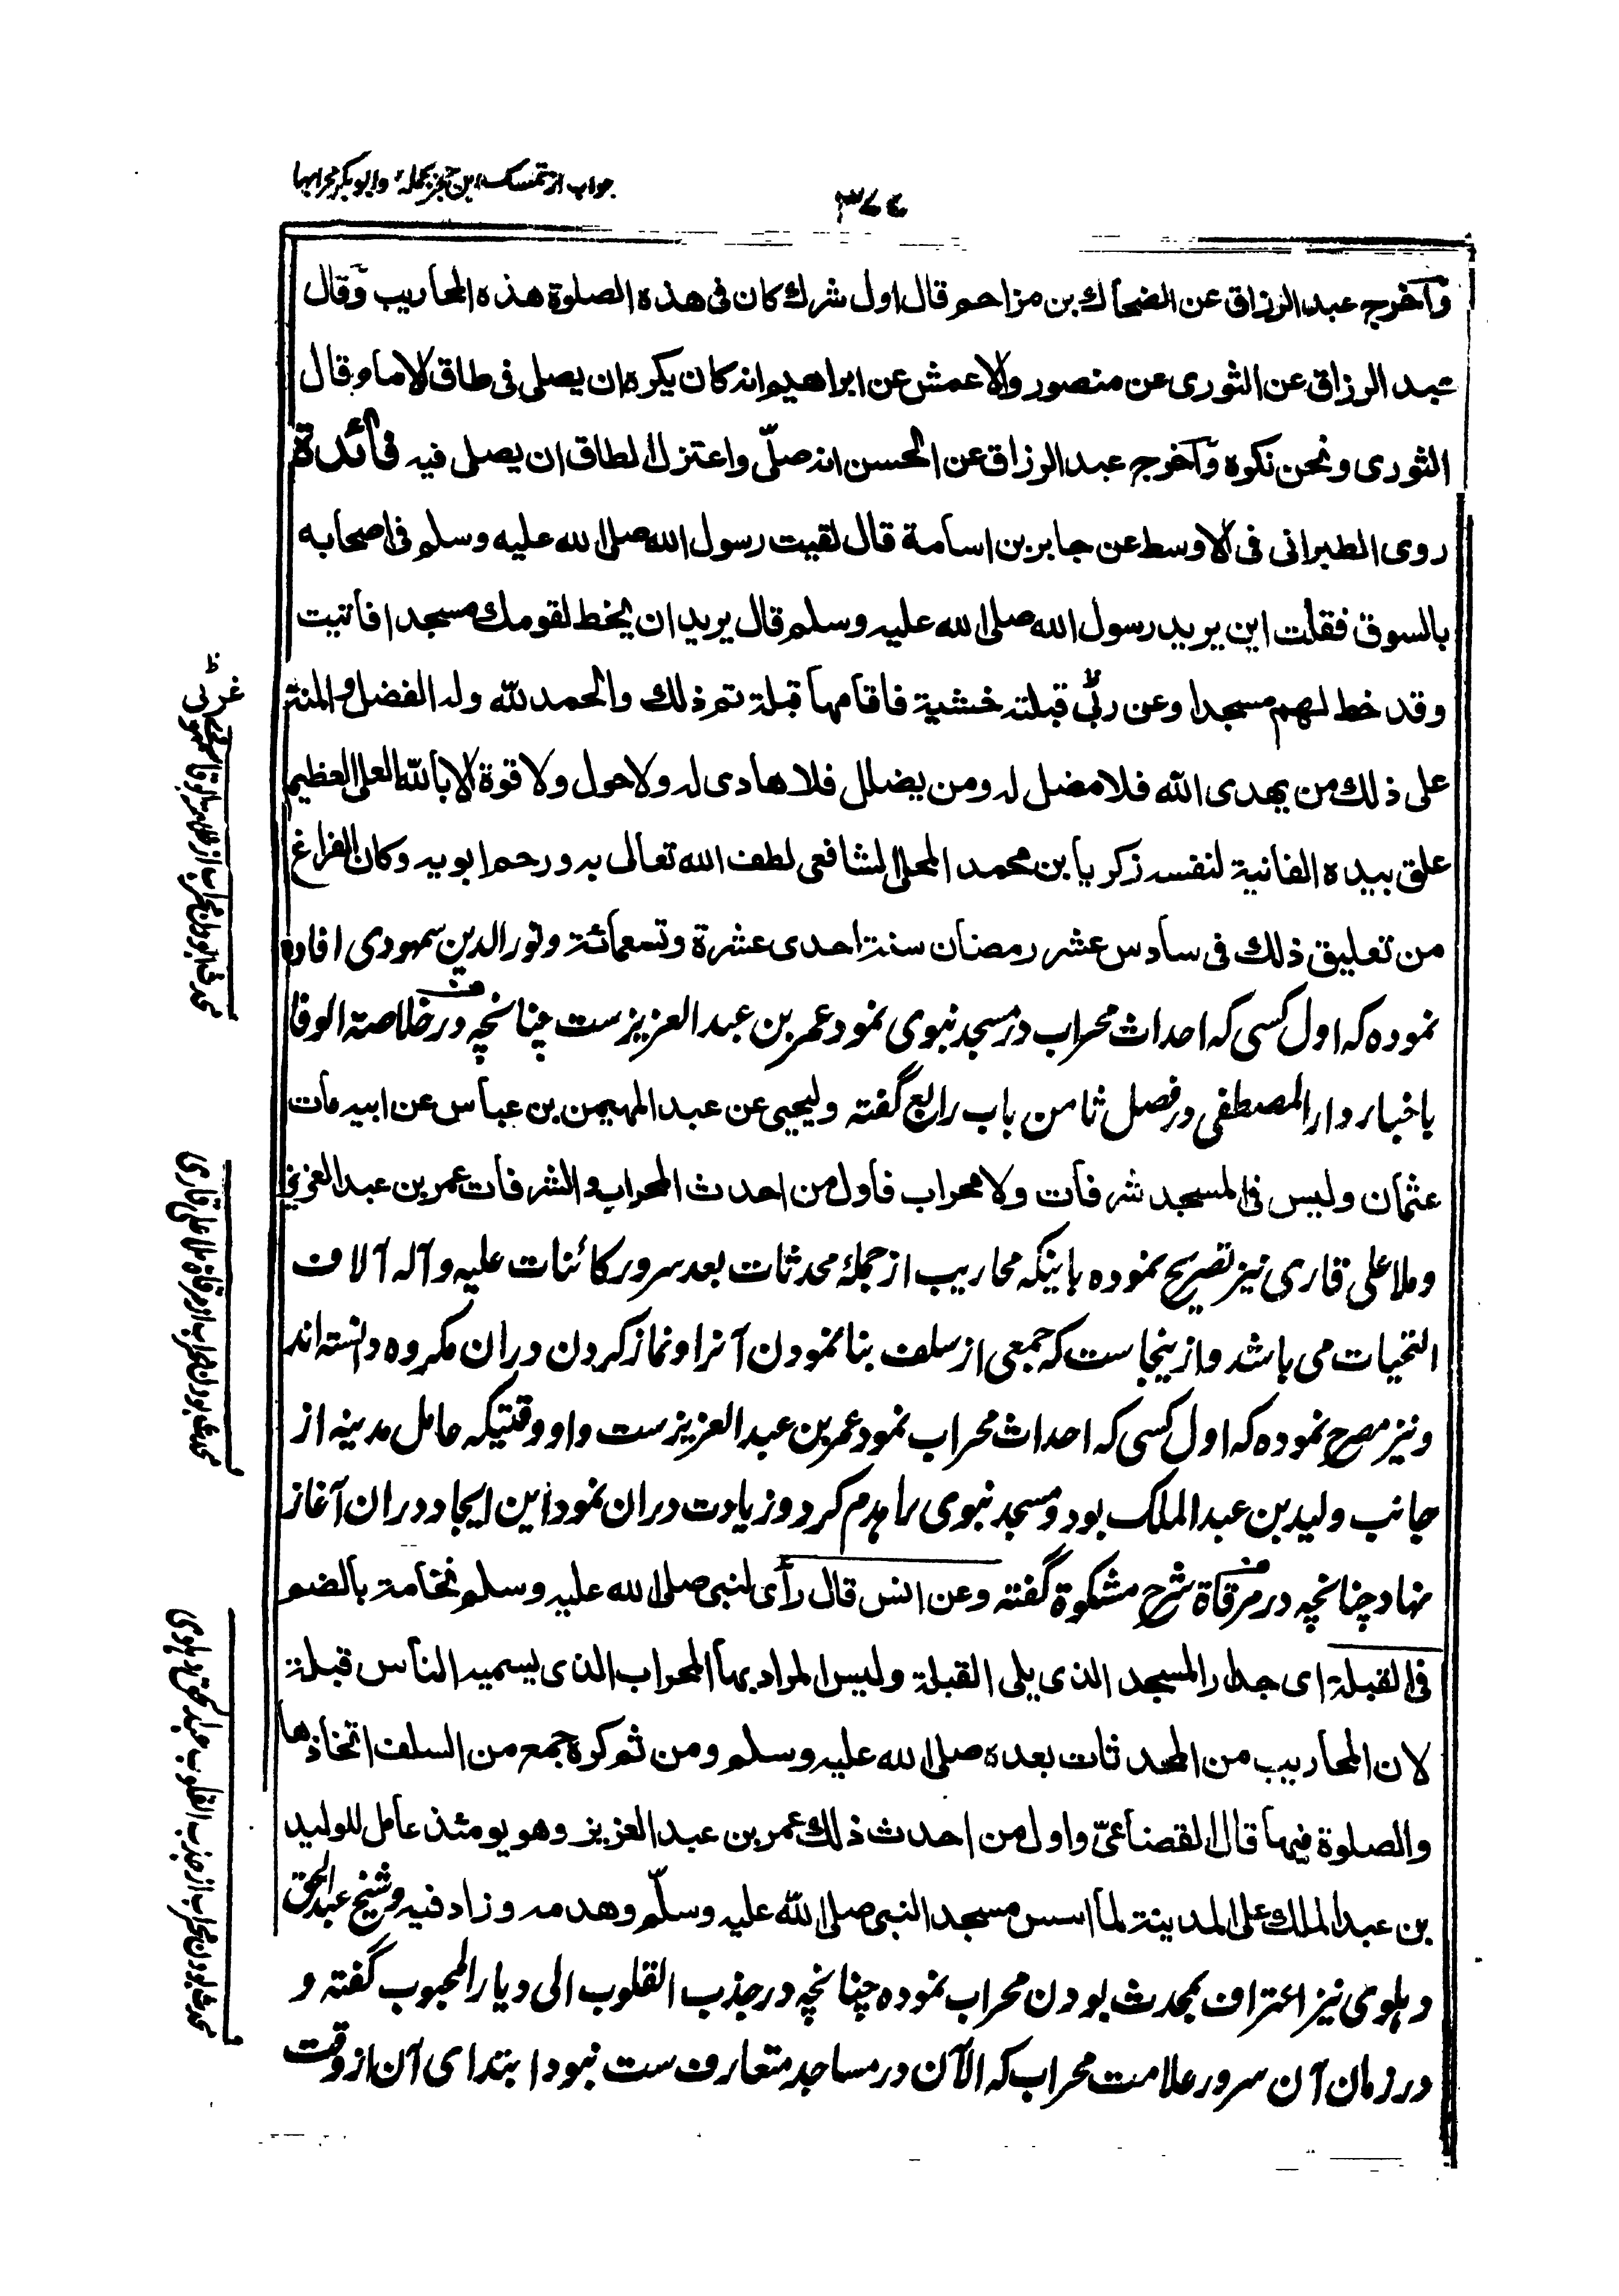 جواب از تمسک ابن حجر بجملهٔ وابو بکر محرابها
۳۷۴
وآخرج عبد الرزاق عن الضحاك بن مزاحم قال اول شرك كان فى هذه الصلوة هذه المحاريب وقال
عبد الرزاق عن الثورى عن منصور والاعمش عن ابراهيم انه كان يكره ان يصلى فى طاق الامام وقال
الثورى ونحن نكره وآخرج عبد الرزاق عن الحسن انه صلّى واعتزل الطاق ان يصلى فيه فائدة
روى الطبرانى فى الاوسط عن جابر بن اسامة قال لقيت رسول الله صلى الله عليه وسلم فى اصحابه
بالسوق فقلت اين يريد رسول الله صلى الله عليه وسلم قال يريد ان يخط لقومك مسجدا فأتيت
وقد خط لهم مسجدا وعن ربّى قبلته خشية فاقامها قبلة تم ذلك والحمد لله وله الفضل والمنة
على ذلك من يهدى الله فلا مضل له ومن يضلل فلا هادى له ولا حول ولا قوة الا بالله العلى العظيم
علق بيده الفانية لنفسه زكريا بن محمد المحلى الشافعى لطف الله تعالى به ورحم ابويه وكان الفراغ
من تعليق ذلك فى سادس عشر رمضان سنة احدى عشرة وتسعمائة ونور الدین سمهودی افاده
نموده که اول کسی که احداث محراب در مسجد نبوی نمود عمر بن عبد العزیز ست چنانچه در خلاصة الوفا
باخبار دار المصطفی در فصل ثامن باب رابع گفته وليحيى عن عبد المهيمن بن عباس عن ابيه مات
عثمان وليس فى المسجد شرفات ولا محراب فأول من احدث المحراب والشرفات عمر بن عبد العزيز
وملا علی قاری نیز تصریح نموده باینکه محاریب از جمله محدثات بعد سرور کائنات علیه وآله آلاف
التحیات می باشد و ازینجاست که جمعی از سلف بنا نمودن آنرا و نماز کردن دران مکروه دانسته اند
ونیز مصرح نموده که اول کسی که احداث محراب نمود عمر بن عبد العزیز ست و او وقتیکه عامل مدینه از
جانب ولید بن عبد الملک بود و مسجد نبوی را هدم کرد و زیادت دران نمود این ایجاد دران آغاز
نهاد چنانچه در مرقاة شرح مشکوة گفته وعن انس قال رأى النبى صلى الله عليه وسلم نخامة بالضم
فى القبلة اى جدار المسجد الذى يلى القبلة وليس المراد بها المحراب الذى يسميه الناس قبلة
لان المحاريب من المحدثات بعده صلى الله عليه وسلم ومن ثم كره جمع من السلف اتخاذها
والصلوة فيها قال القضاعىّ واول من احدث ذلك عمر بن عبد العزيز وهو يومئذ عامل للوليد
بن عبد الملك على المدينة لما اسس مسجد النبى صلى الله عليه وسلّم وهدمه وزاد فيه وشیخ عبد الحق
دهلوی نیز اعتراف بمحدث بودن محراب نموده چنانچه در جذب القلوب الی دیار المحبوب گفته و
در زمان آن سرور علامت محراب که الآن در مساجد متعارف ست نبود ابتدای آن از وقت
محدث بودن محراب از مرقاة ملا علی قاری
محدث بودن محراب از جذب القلوب عبد الحق دهلوی